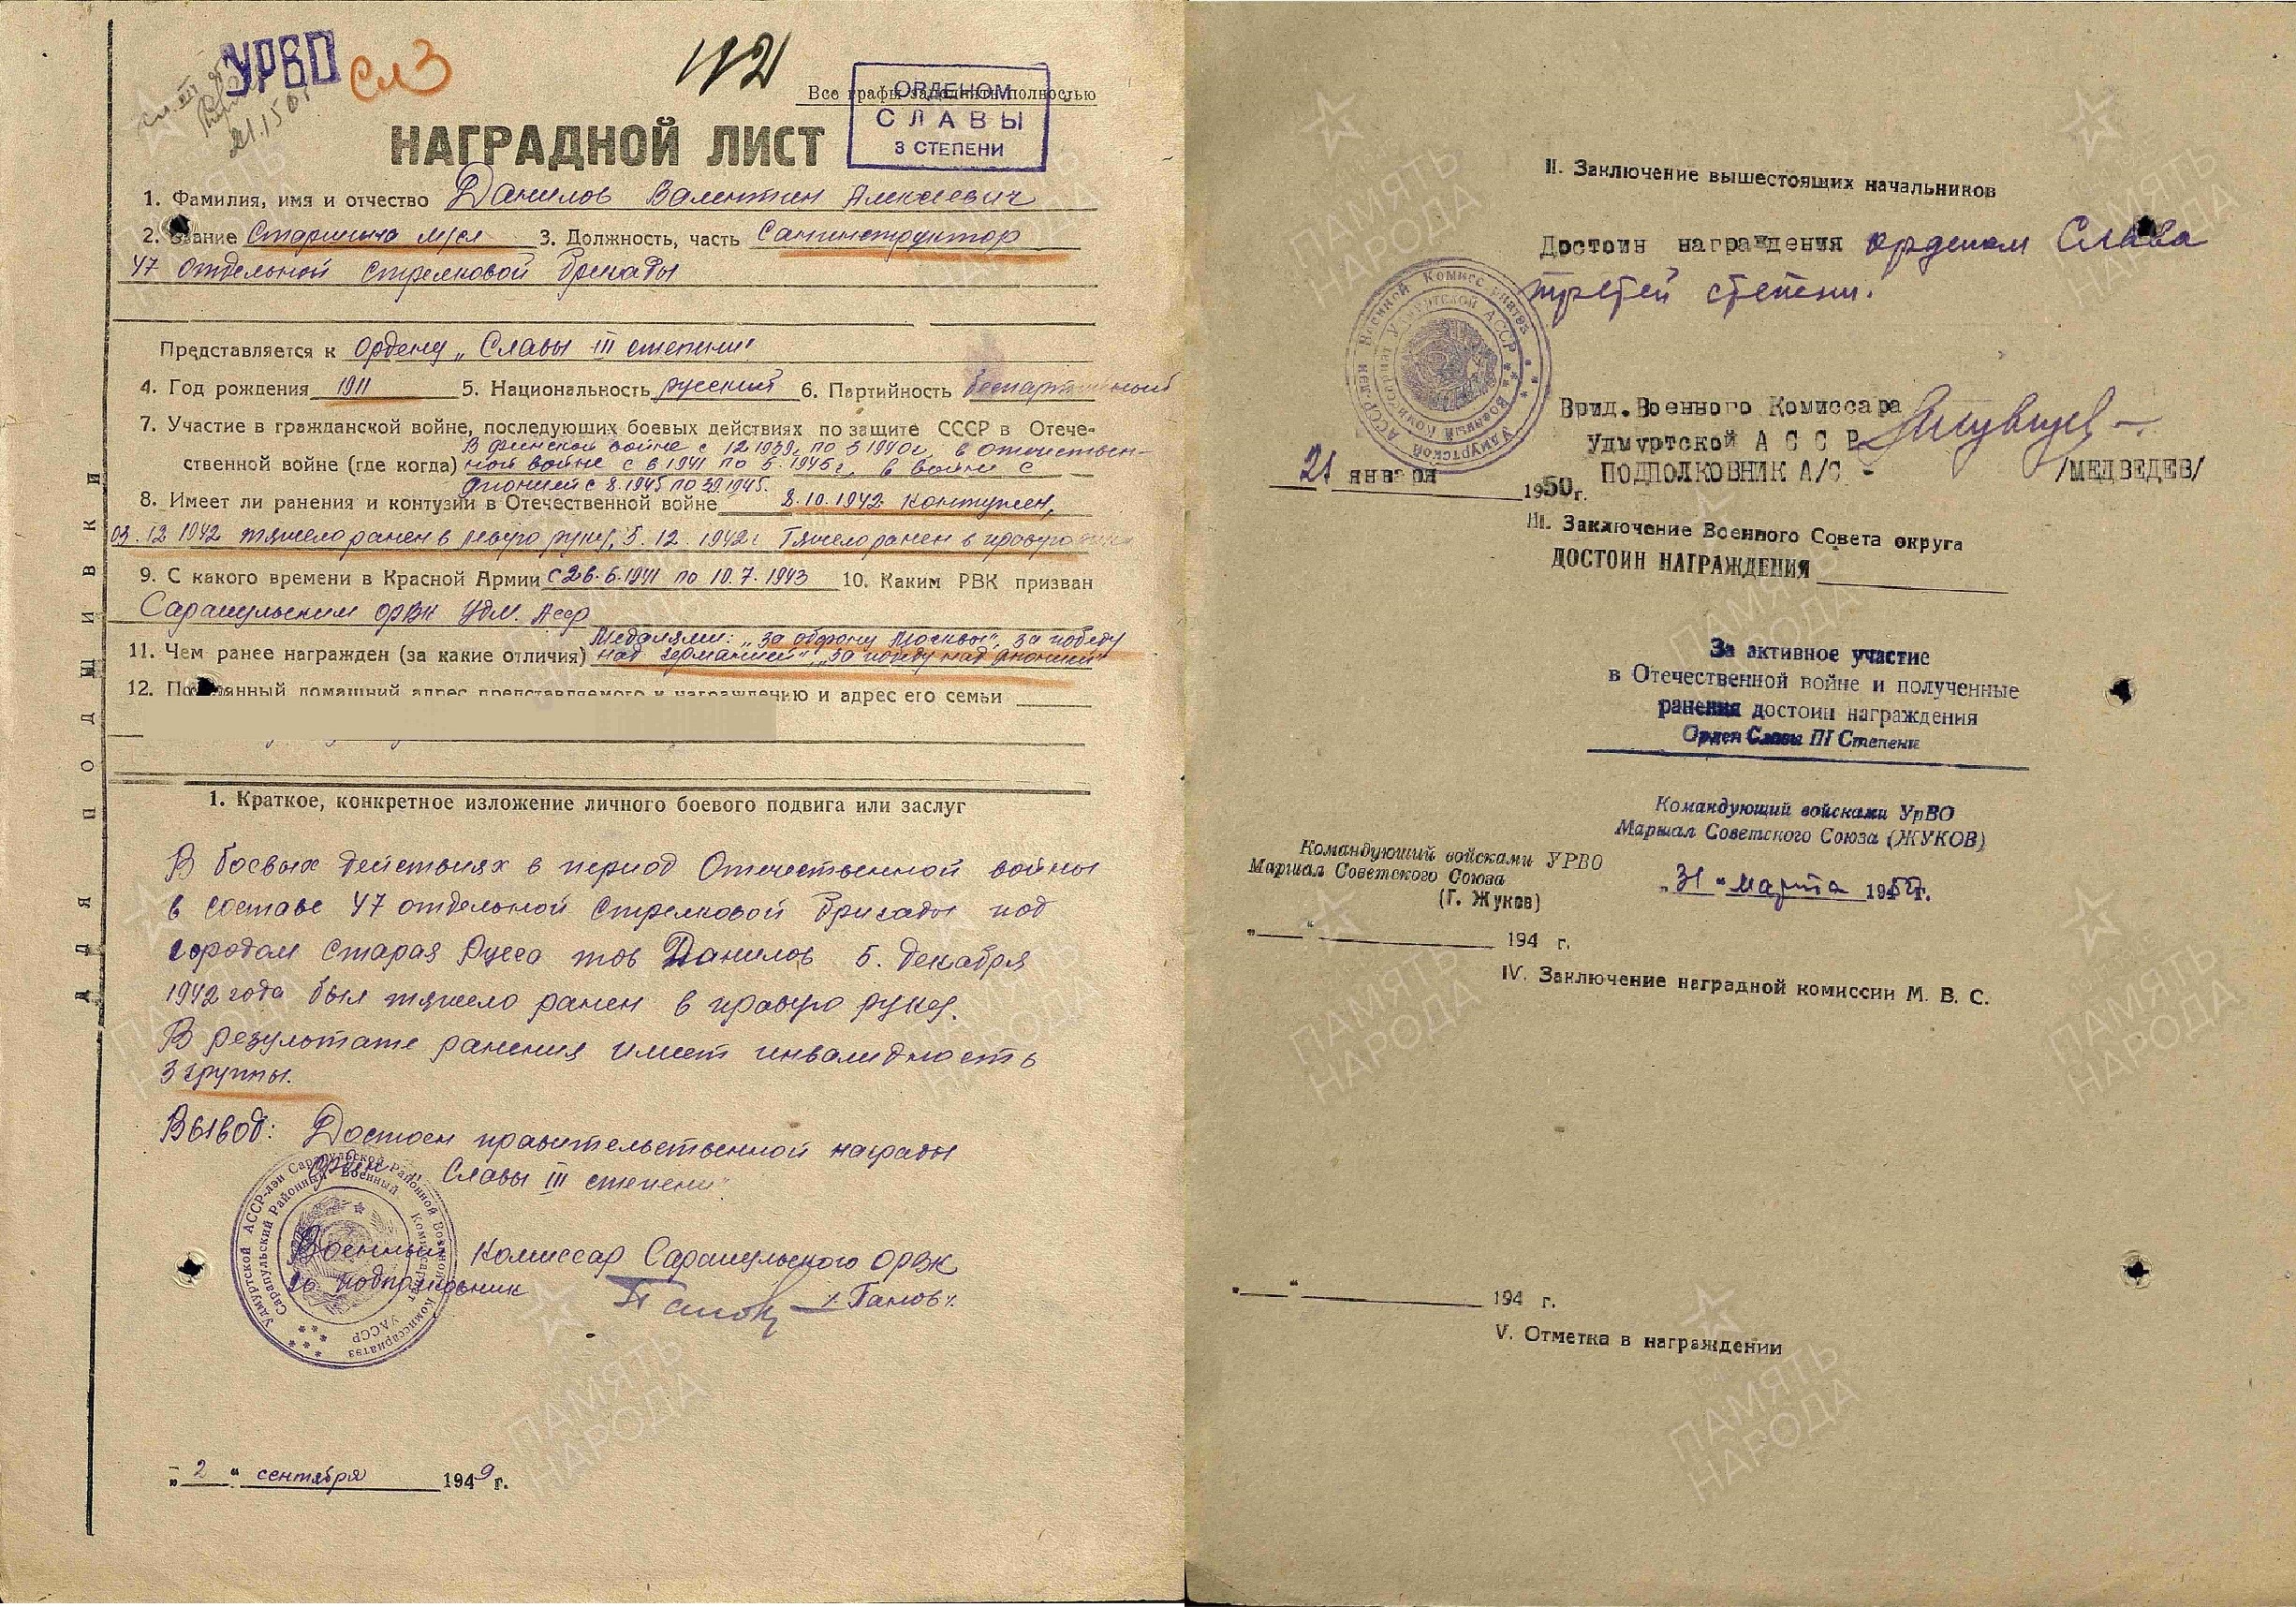 УРВО
Сл3
112
Все графы заполнять полностью
ОРДЕНОМ
СЛАВЫ
3 СТЕПЕНИ
НАГРАДНОЙ ЛИСТ
1. Фамилия, имя и отчество Данилов Валентин Алексеевич
2. Звание Старшина м/сл 3. Должность, часть Санинструктор
47 отдельной стрелковой бригады
Представляется к Ордену „Славы III степени"
4. Год рождения 1911 5. Национальность русский 6. Партийность беспартийный
7. Участие в гражданской войне, последующих боевых действиях по защите СССР в Отече-
В финской войне с 12 1939г. по 3 1940г., в отечествен-
ственной войне (где когда) ной войне с 6 1941 по 5.1945г, в войне с
Японией с 8.1945 по 9.1945.
8. Имеет ли ранения и контузии в Отечественной войне 8.10.1942 контужен,
03.12 1942 тяжело ранен в левую руку, 5.12.1942г Тяжело ранен в правую
9. С какого времени в Красной Армии с 26.6.1941 по 10.7.1943 10. Каким РВК призван
Сарапульским ОРВК Удм. АССР
Медалями: „За оборону Москвы", „За победу
11. Чем ранее награжден (за какие отличия) над Германией", „За победу над Японией"
12. Постоянный домашний адрес представляемого к награждению и адрес его семьи
ДЛЯ ПОДШИВКИ
1. Краткое, конкретное изложение личного боевого подвига или заслуг
В боевых действиях в период Отечественной войны
в составе 47 отдельной стрелковой бригады под
городом Старая Русса тов Данилов 5. декабря
1942 года был тяжело ранен в правую руку.
В результате ранения имеет инвалидность
3 группы.
Вывод: Достоен правительственной награды
Орден „Славы III степени"
Военный комиссар Сарапульского ОРВК
подполковник /Папов/.
Удмуртской АССР-лэн Сарапульской Районной Военной Комиссариатэз
Сарапульский Районный Военный Комиссариат УАССР
„2" сентября 1949 г.
II. Заключение вышестоящих начальников
Достоин награждения орденом Слава
третей степени.
Удмуртской АССР Военной Комиссариатэз
Военный Комиссариат Удмуртской АССР
Врид.Военного Комиссара
Удмуртской А С С Р
21 января 1950г. ПОДПОЛКОВНИК А/С - /МЕДВЕДЕВ/
III. Заключение Военного Совета округа
ДОСТОИН НАГРАЖДЕНИЯ
За активное участие
в Отечественной войне и полученные
ранения достоин награждения
Орден Славы III Степени
Командующий войсками УрВО
Маршал Советского Союза (ЖУКОВ)
„31" марта 195 г.
Командующий войсками УРВО
Маршал Советского Союза
(Г. Жуков)
„ " 194 г.
IV. Заключение наградной комиссии М. В. С.
„ " 194 г.
V. Отметка в награждении
ПАМЯТЬ НАРОДА